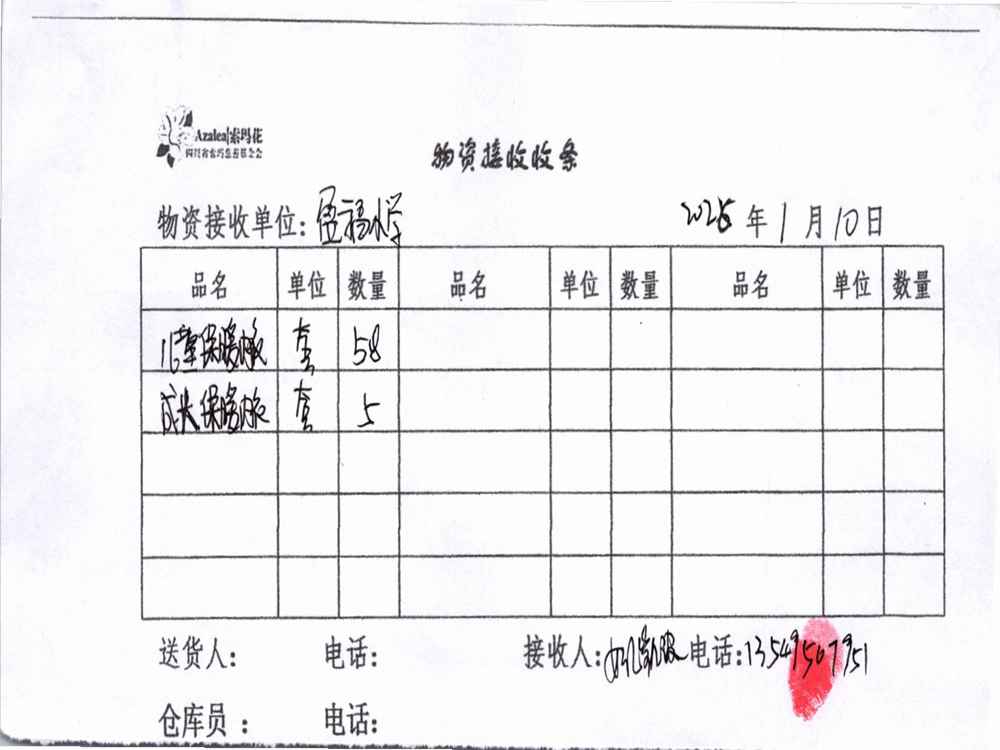 Azalea|索玛花
四川省索玛慈善基金会
物资接收收条
物资接收单位: 福小学 2025 年 1 月 10 日
品名 单位 数量 品名 单位 数量 品名 单位 数量
儿童保暖 套 58
成人保暖 套 5
送货人: 电话: 接收人: 电话:13549567951
仓库员 : 电话: